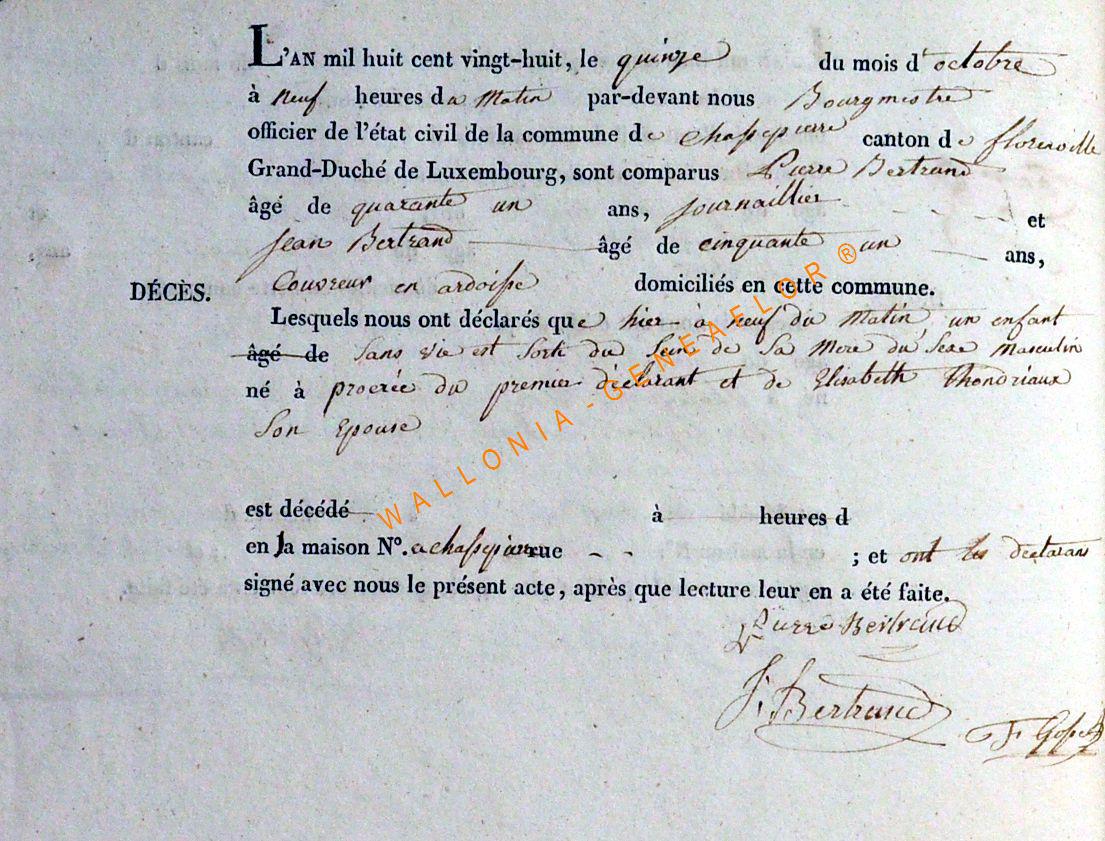 L'AN mil huit cent vingt-huit, le quinze du mois d'octobre
à neuf heures du Matin par-devant nous Bourgmestre
officier de l'état civil de la commune de chassepierre canton de florenville
Grand-Duché de Luxembourg, sont comparus Pierre Bertrand
âgé de quarante un ans, journaillier - - - - - et
Jean Bertrand âgé de cinquante un ans,
DÉCÈS. Couvreur en ardoisse domiciliés en cette commune.
Lesquels nous ont déclarés que hier à neuf du Matin, un enfant
âgé de sans vie est sorti du sein de sa Mere du sexe Masculin
né à procrée du premier déclarant et de Elisabeth Thondriaux
son Epouse
est décédé à heures d
en la maison N°. a chassepierre rue - - ; et ont les déclarans
signé avec nous le présent acte, après que lecture leur en a été faite.
Pierre Bertrand
J. Bertrand
WALLONIA - GENEAFLOR ®